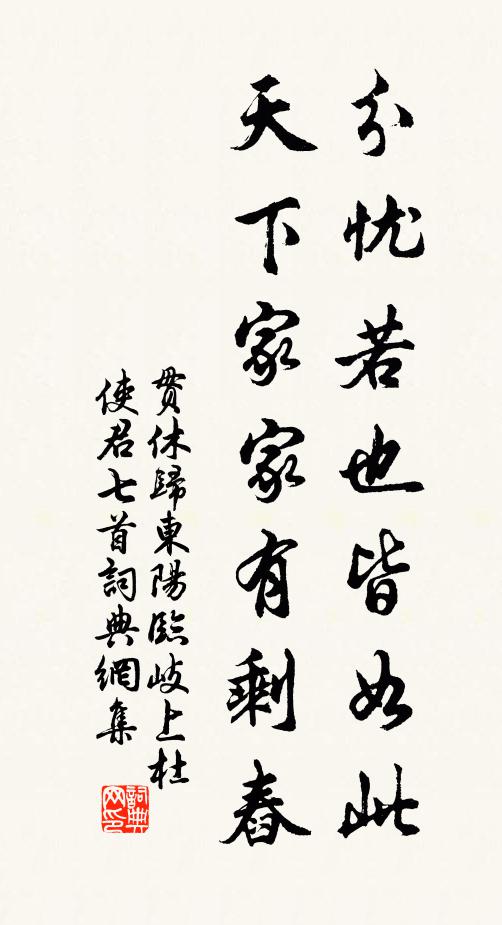 分忧若也皆如此
天下家家有剩春
貫休歸東陽臨岐上杜
使君七首詞典網集
詞典
网印